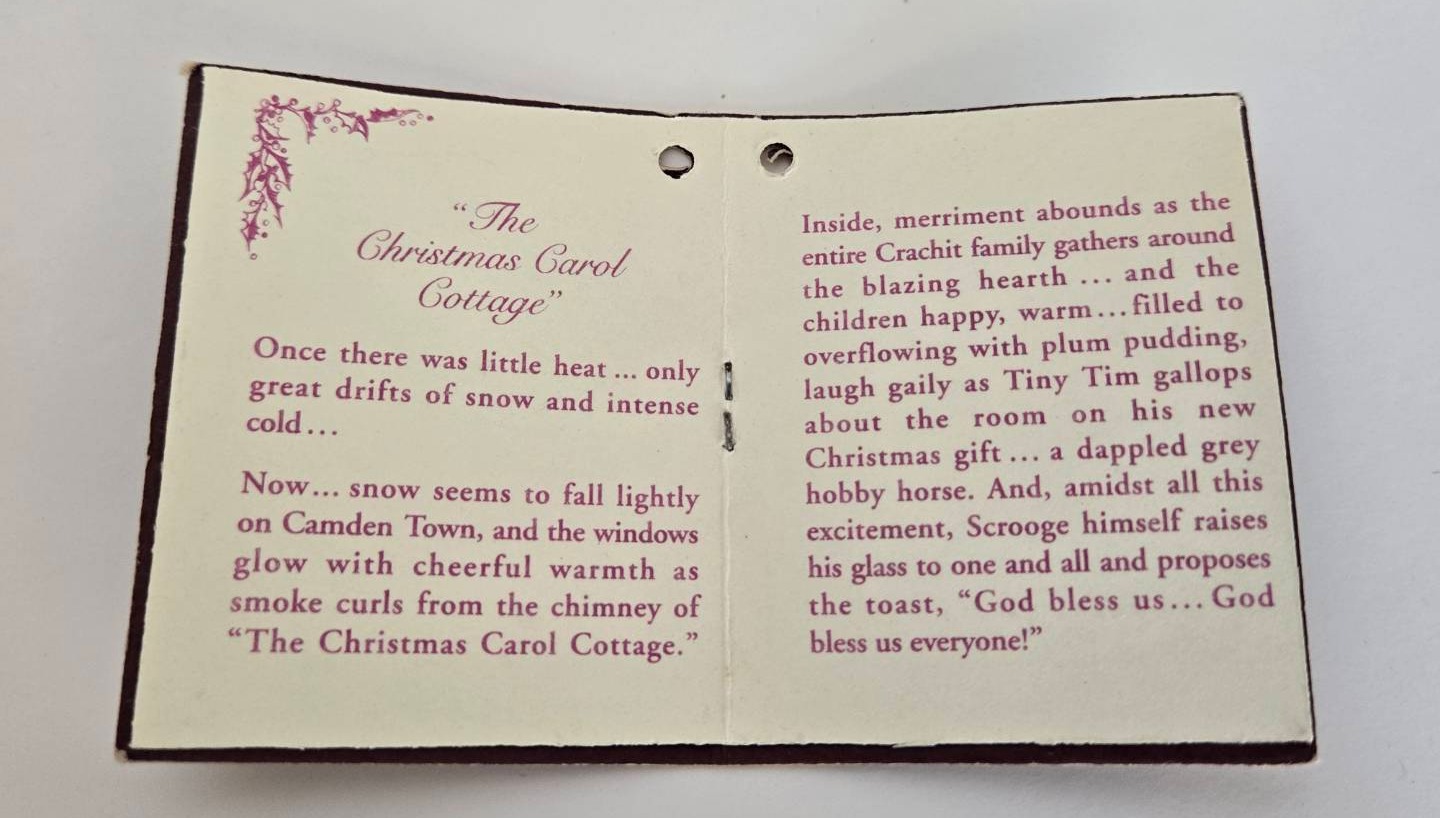 “The
Christmas Carol
Cottage”
Once there was little heat ... only
great drifts of snow and intense
cold ...
Now ... snow seems to fall lightly
on Camden Town, and the windows
glow with cheerful warmth as
smoke curls from the chimney of
“The Christmas Carol Cottage.”
Inside, merriment abounds as the
entire Crachit family gathers around
the blazing hearth ... and the
children happy, warm ... filled to
overflowing with plum pudding,
laugh gaily as Tiny Tim gallops
about the room on his new
Christmas gift ... a dappled grey
hobby horse. And, amidst all this
excitement, Scrooge himself raises
his glass to one and all and proposes
the toast, “God bless us ... God
bless us everyone!”